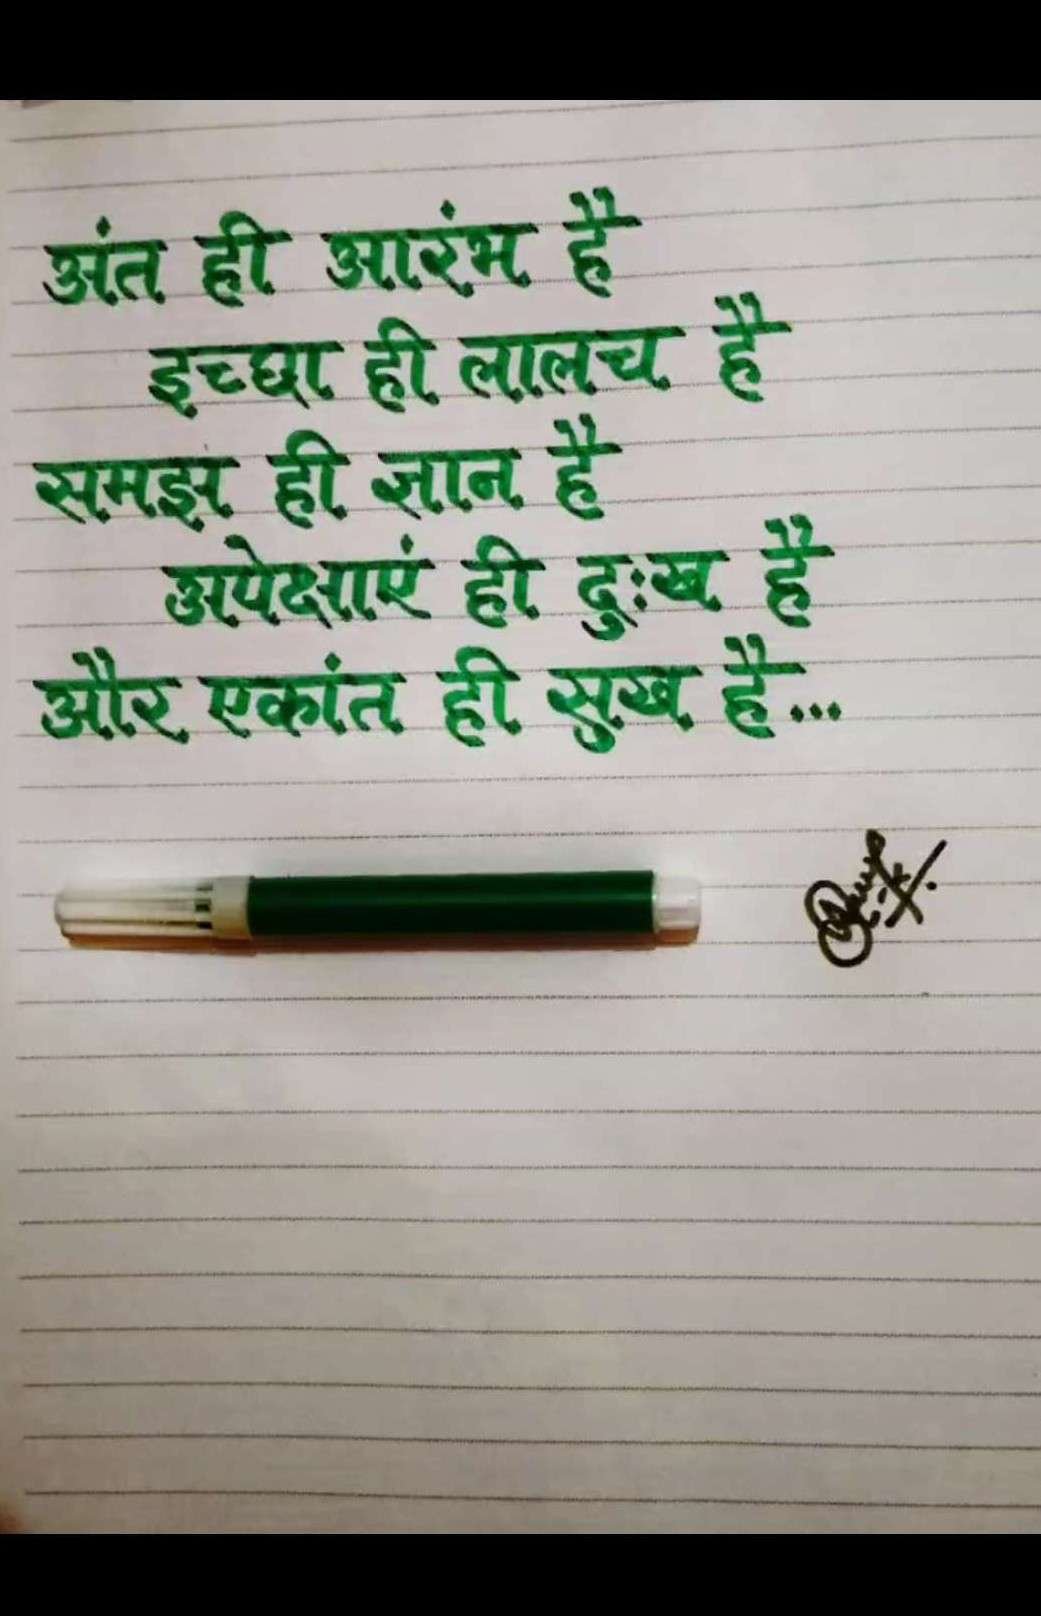 अंत ही आरंभ है
इच्छा ही लालच है
समझ ही ज्ञान है
अपेक्षाएं ही दुःख है
और एकांत ही सुख है...